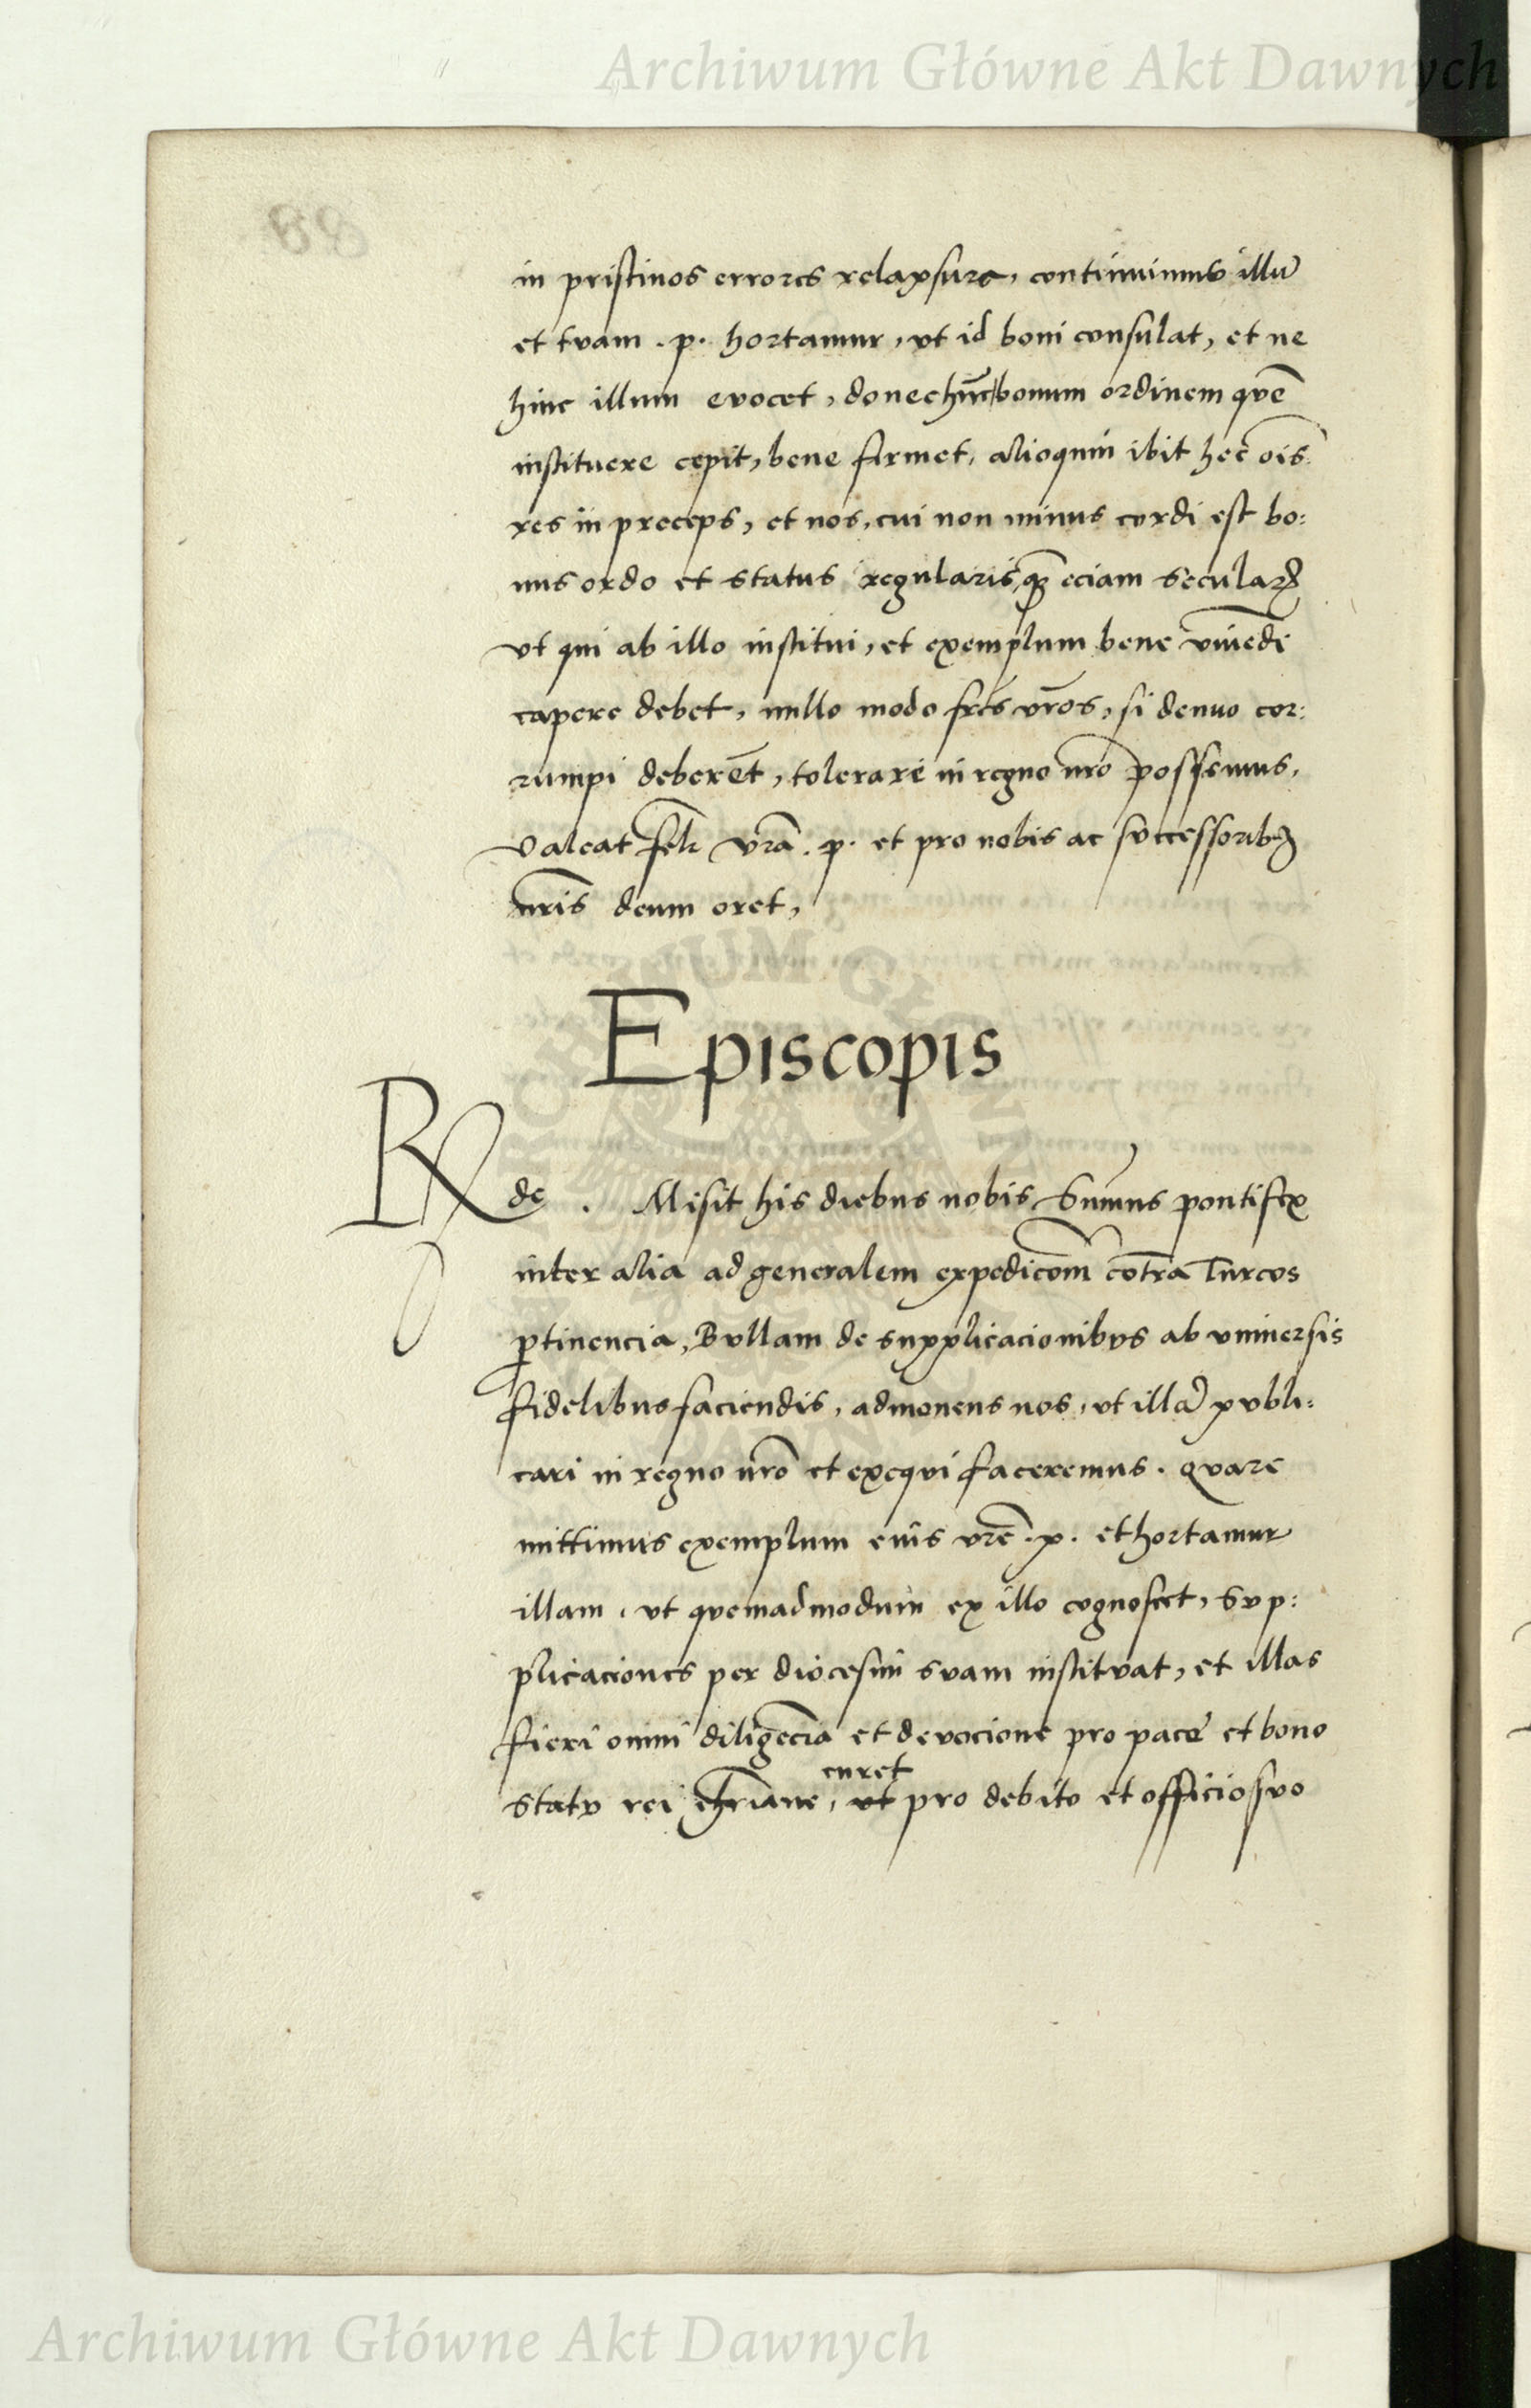 Archiwum Główne Akt Dawnych
in pristinos errores relapsure, continuimus illū
et tuam . p. hortamur, vt id boni consulat, et ne
hinc illum evocet, donec hūc bonum ordinem quē
instituere cepit, bene firmet, alioquin ibit hec oīs
res in preceps, et nos, cui non minus cordi est bo:
nus ordo et status regularis, quā eciam secularꝭ
vt qui ab illo institui, et exemplum bene viuēdi
capere debet, nullo modo frēs vr̄os, si denuo cor:
rumpi deberēt, tolerare in regno nr̄o possemus,
Valeat vrā . p. et pro nobis ac successoribꝫ
nr̄is deum oret,
Episcopis
Rde . Misit his diebus nobis Sum̄us pontifex
inter alia ad generalem expedicōm cōtra Turcos
ꝑtinencia, Bullam de supplicacionibus ab vniuersis
fidelibus faciendis, admonens nos, vt illā publi:
cari in regno nr̄o et exequi faceremus. Quare
mittimus exemplum eius vrē . p. et hortamur
illam, vt quemadmodum ex illo cognoscet, Sup:
plicaciones per diocesim suam instituat, et illas
fieri omni diligēcia et devocione pro pace et bono
curet
statu rei chr̄iane, vt pro debito et officio suo
Archiwum Główne Akt Dawnych